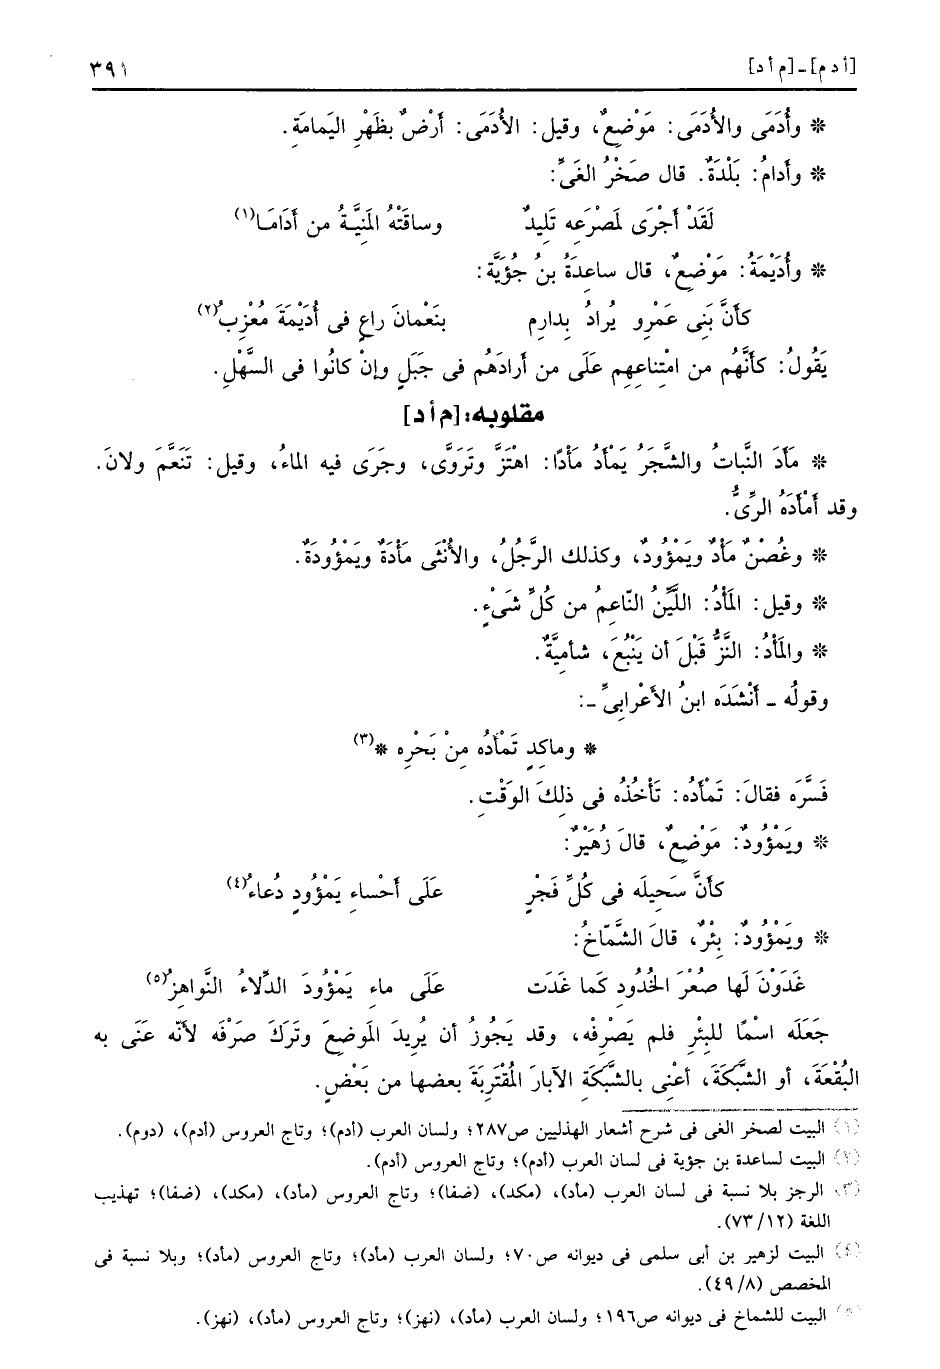 [أدم] ـ [م أد] ٣٩١
* وأُدَمَى والأُدَمَى: مَوْضِعٌ، وقيل: الأُدَمَى: أَرْضٌ بظَهْرِ اليَمامَةِ.
* وأَدامُ: بَلْدَةٌ. قال صَخْرُ الغَىِّ:
لَقَدْ أَجْرَى لَمصْرَعِه تَلِيدٌ وساقَتْهُ المَنِيَّةُ من أَدَامَا(١)
* وأُدَيْمَةُ: مَوْضِعٌ، قال ساعِدَةُ بنُ جُؤَيَّة:
كأَنَّ بَنِى عَمْرِو يُرادُ بِدارِمِ بنَعْمانَ راعٍ فى أُدَيْمَةَ مُعْزِبُ(٢)
يَقُولُ: كأَنَّهُم من امْتِناعِهِم عَلَى من أرادَهُم فى جَبَلٍ وإنْ كانُوا فى السَّهْلِ.
مقلوبه: [م أ د]
* مَأَدَ النَّباتُ والشَّجَرُ يَمْأَدُ مَأْدًا: اهْتَزَّ وتَرَوَّى، وجَرَى فيه الماءُ، وقيل: تَنَعَّمَ ولانَ.
وقد أَمْأَدَهُ الرِّىُّ.
* وغُصْنٌ مَأْدٌ ويَمْؤُودٌ، وكذلك الرَّجُلُ، والأُنْثَى مَأْدَةٌ ويَمْؤُودَةٌ.
* وقيل: المَأْدُ: اللَّيِّنُ النّاعِمُ من كُلِّ شَىْءٍ.
* والمَأْدُ: النَّزُّ قَبْلَ أن يَنْبُعَ، شأمِيَّةٌ.
وقولُه ـ أَنْشَدَه ابنُ الأَعْرابىِّ ـ:
* وماكِدٍ تَمْأَدُه مِنْ بَحْرِه *(٣)
فَسَّرَه فقالَ: تَمْأَدُه: تَأْخُذُه فى ذلِكَ الوَقْتِ.
* ويَمْؤُودٌ: مَوْضِعٌ، قالَ زُهَيْرٌ:
كأَنَّ سَحِيلَه فى كُلِّ فَجْرٍ عَلَى أَحْساءِ يَمْؤُودٍ دُعاءُ(٤)
* ويَمْؤُودٌ: بِئْرٌ، قالَ الشَّمّاخُ:
غَدَوْنَ لَها صُعْرَ الخُدُودِ كَما غَدَت عَلَى ماءِ يَمْؤُودَ الدِّلاءُ النَّواهِزُ(٥)
جَعَلَه اسْمًا للبِئْرِ فلم يَصْرِفْه، وقد يَجُوزُ أن يُرِيدَ المَوضِعَ وتَرَكَ صَرْفَه لأنّه عَنَى به
البُقْعَةَ، أو الشَّبَكَةَ، أعْنِى بالشَّبَكَةِ الآبارَ المُقْتَرِبَةَ بعضها من بَعْضٍ.
(١) البيت لصخر الغى فى شرح أشعار الهذليين ص٢٨٧؛ ولسان العرب (أدم)؛ وتاج العروس (أدم)، (دوم).
(٢) البيت لساعدة بن جؤية فى لسان العرب (أدم)؛ وتاج العروس (أدم).
(٣) الرجز بلا نسبة فى لسان العرب (مأد)، (مكد)، (ضفا)؛ وتاج العروس (مأد)، (مكد)، (ضفا)؛ تهذيب
اللغة (١٢/ ٧٣).
(٤) البيت لزهير بن أبى سلمى فى ديوانه ص٧٠؛ ولسان العرب (مأد)؛ وتاج العروس (مأد)؛ وبلا نسبة فى
المخصص (٨/ ٤٩).
(٥) البيت للشماخ فى ديوانه ص١٩٦؛ ولسان العرب (مأد)، (نهز)؛ وتاج العروس (مأد)، (نهز).